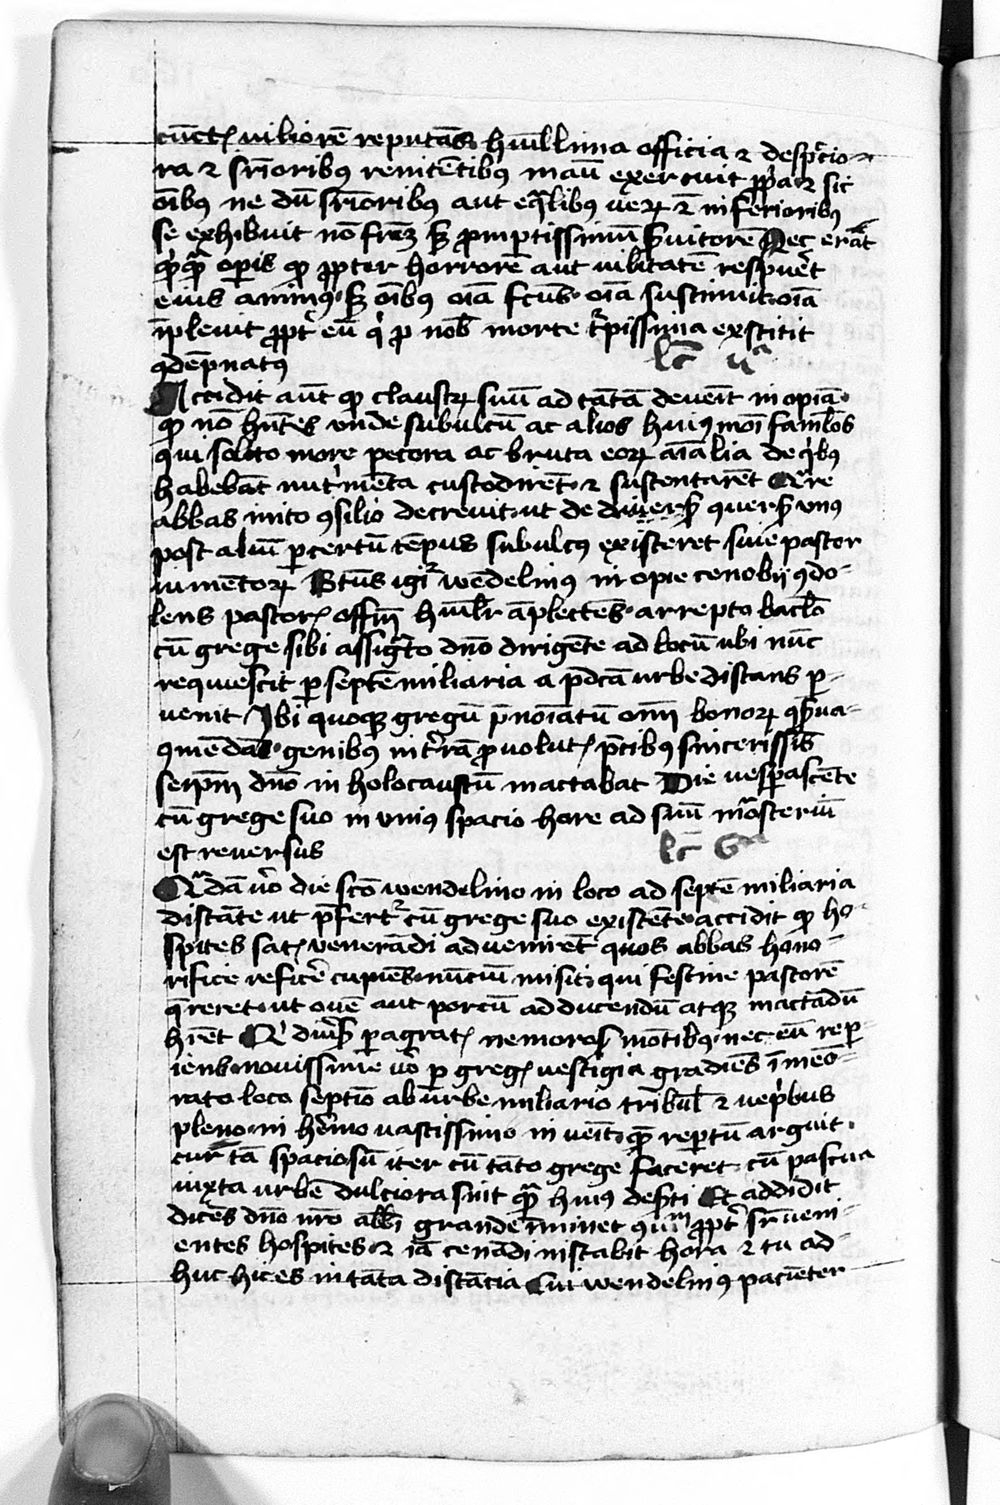 cūctꝭ viliorē reputās humillima officia ⁊ despctio-
ra ⁊ sr̄ioribꝰ renitētibꝰ manū exercuit ꝓpa ⁊ sic
oībꝰ ne dū sr̄ioribꝰ aut eqͣlibꝰ veꝝ ⁊ inferioribꝰ
se exhibuit nō frēꝫ sꝫ ꝓmptissimū suitorē Nec erāt
qͥcqͣ operis qd̛ ꝓpter horrorē aut vilitatē respuet
eius animꝰ sꝫ oībꝰ oīa fcūs oīa sustinuit oīa
īplevit ꝓpt̛ eū qͥ ꝓ nob̄ morte tͥpissima exstitit
ꝯdēpnatꝰ lc̄ vͣ
Accidit aūt qd̛ claustꝝ suū ad tātā deveīt inopiā
qd̛ nō hn̄tes vnde subulcū ac alios huiꝰmōi famlos
qui solito more pecora ac bruta eoꝝ aīalia de qͥbꝰ
habebāt nutͥmēta custodirēt ⁊ sustentarēt Qͣre
abbas inito ꝯsilio decrevit ut de diversꝭ vnꝰ
post aliū ꝑ certū tēpus subulcꝰ existeret sive pastor
iumētoꝝ Btūs igiͬ wēdelinꝰ inopie cenobij ꝯdo-
lens pastorꝭ offm̄ humlr āplectēs arrepto baclo
cū grege sibi assigͣto dn̄o dirigēte ad locū ubi nūc
requiescit ꝑ septē miliaria a p̄dcā urbe distans ꝑ-
venit Ibi quoqꝫ gregū p̄noīatū om̄ bonoꝝ ꝯserva-
 genibꝰ in tͬrā ꝓvolutꝭ p̄cibꝰ sincerissīs
seip̄m dn̄o in holocaustū mactabat Die vesꝑascēte
cū grege suo in vniꝰ spacio hore ad suū moͣsteriū
est reversus lc̄ 6ͣ
Qͣdā vͦ die scō wendelino in loco ad septē miliaria
distāte ut p̄fertͬ cū grege suo existēte accidit qd̛ ho-
spites satꝭ venerādi advenirēt quos abbas hono-
rifice reficͤ cupiēs nūciū misit qui festine pastorē
q̄reret ut ovē aut porcū adducendū atqꝫ mactādū
hr̄et Qͥ divͥsꝭ ꝑagratꝭ nemorosꝭ mōtibꝰ nec eū reꝑ-
iens novissime vͦ ꝑ gregꝭ vestigia gradiēs ī meō-
rato loco septīo ab urbe miliario tribul ⁊ vepribus
pleno in hͤmo vastissimo inveīt qͣ reꝑtū arguit
cur tā spaciosū iter cū tāto grege faceret cū pascua
iuxta urbē dulciora sint qͣ huiꝰ desͬti Et addidit
dicēs dn̄o nr̄o abbī grande īminet ꝯviūm ꝓpt̛ sr̄veni-
entes hospites ⁊ iā cenādi instabit hora ⁊ tu ad-
huc hic es in tāta distācia Cui wendelinꝰ paciēter